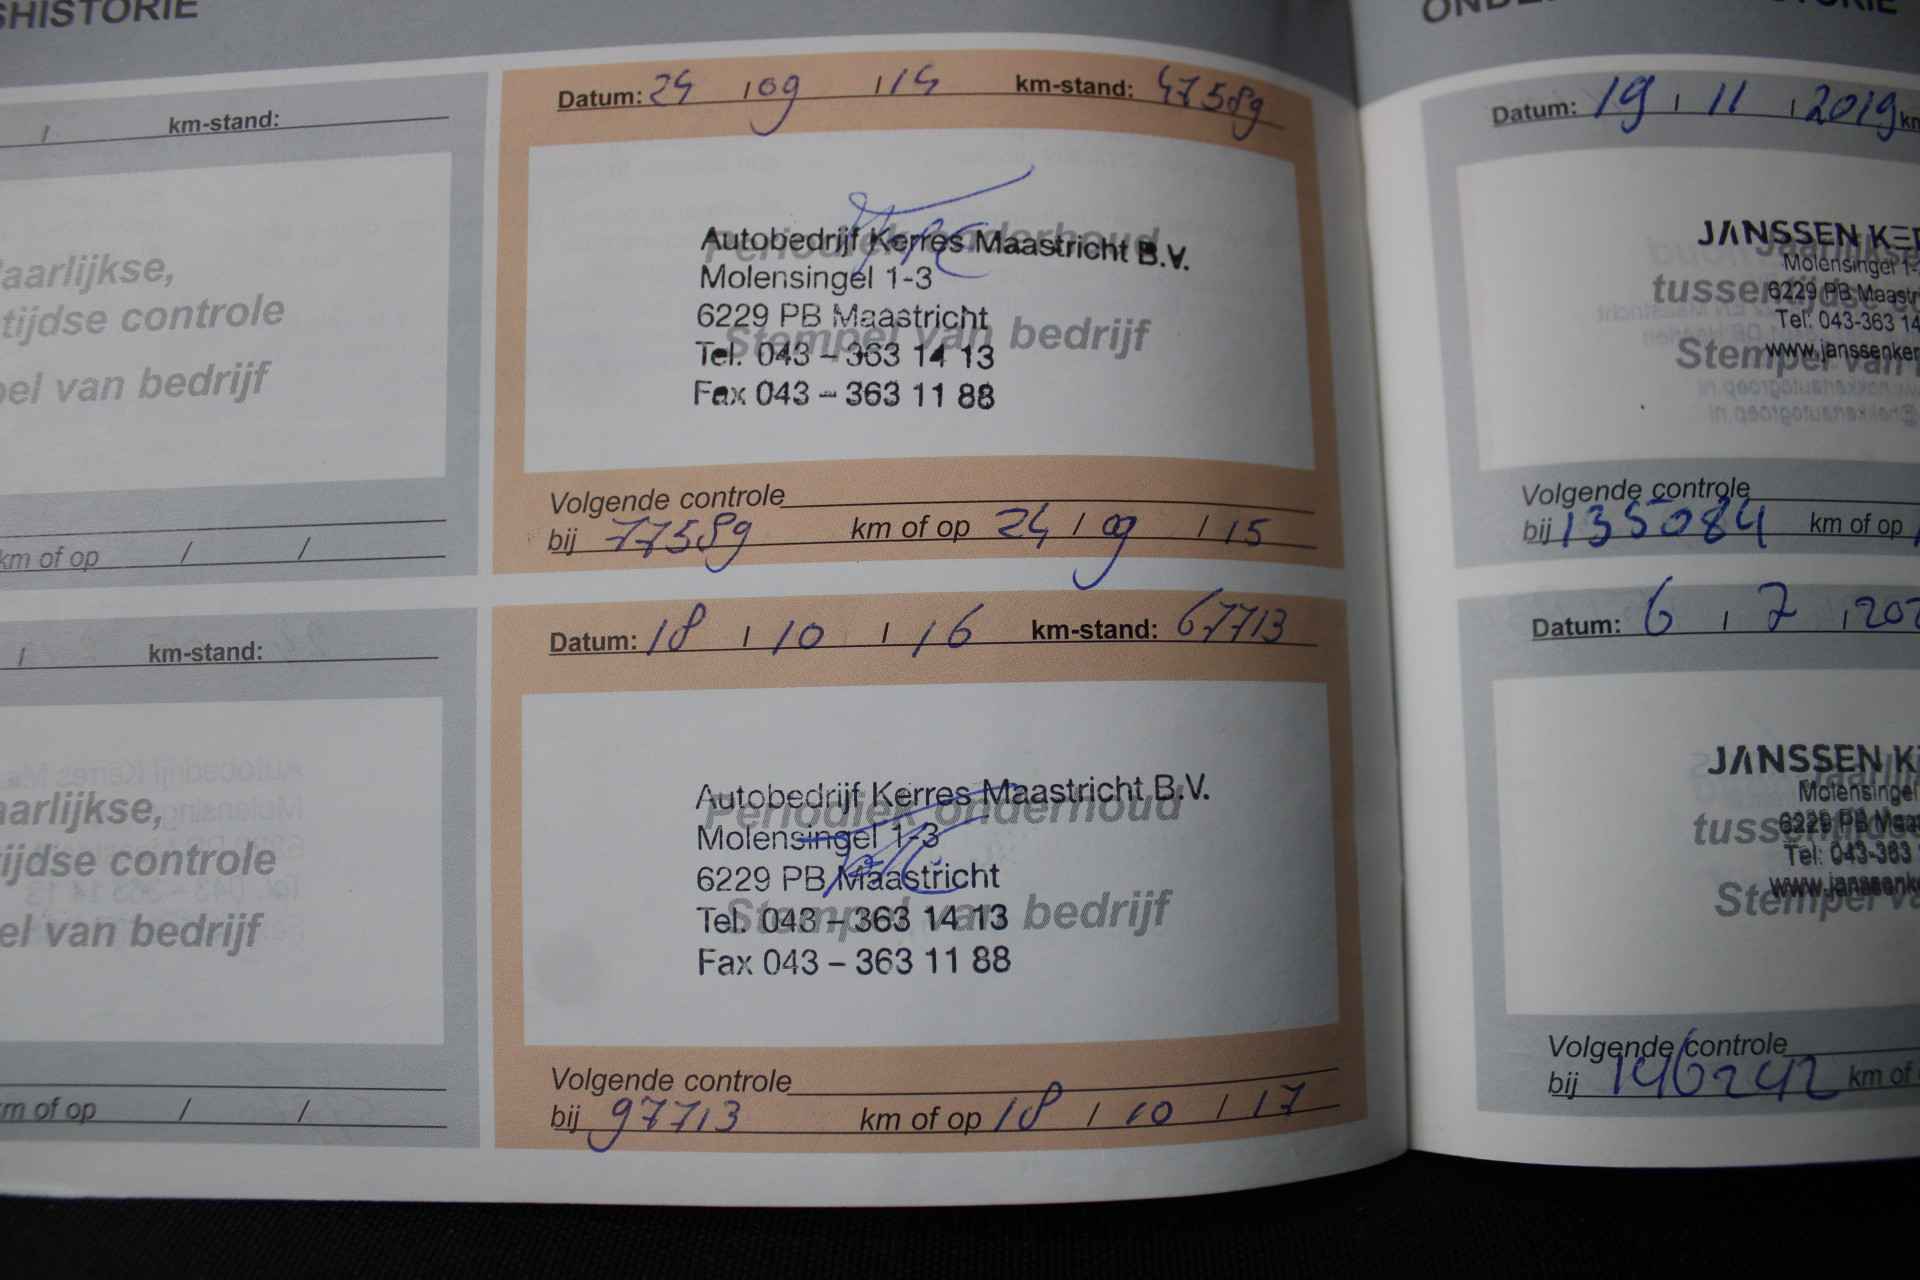 SHISTORIE
/ km-stand:
aarlijkse,
tijdse controle
pel van bedrijf
km of op / /
/ km-stand:
aarlijkse,
ijdse controle
el van bedrijf
km of op / /
Datum: 24 / 09 / 14 km-stand: 47589
Periodiek onderhoud
Autobedrijf Kerres Maastricht B.V.
Molensingel 1-3
6229 PB Maastricht
Stempel van bedrijf
Tel. 043 – 363 14 13
Fax 043 – 363 11 88
Volgende controle
bij 77589 km of op 24 / 09 / 15
Datum: 18 / 10 / 16 km-stand: 67713
Autobedrijf Kerres Maastricht B.V.
Periodiek onderhoud
Molensingel 1-3
6229 PB Maastricht
Stempel van bedrijf
Tel. 043 – 363 14 13
Fax 043 – 363 11 88
Volgende controle
bij 97713 km of op 18 / 10 / 17
Datum: 19 / 11 / 2019 km
JANSSEN KER
Molensingel 1-
tussen
6229 PB Maastr
Tel: 043-363 14
Stempel van
www.janssenker
Volgende controle
bij 135084 km of op
Datum: 6 / 7 / 202
JANSSEN KE
Molensingel
tuss
6229 PB Maas
Tel: 043-363
www.janssenke
Stempel va
Volgende controle
bij 146242 km of